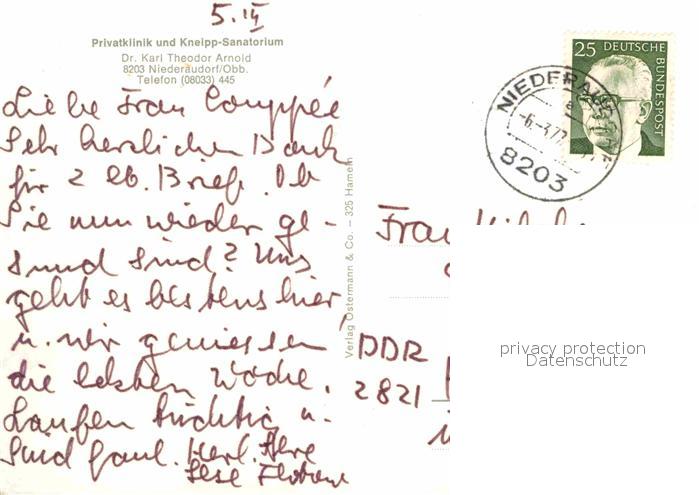 5. III
Privatklinik und Kneipp-Sanatorium
Dr. Karl Theodor Arnold
8203 Niederaudorf/Obb.
Telefon (08033) 445
Liebe Frau Couppée
Sehr herzlichen Dank
für 2 lb. Briefe. Ob
Sie nun wieder ge-
sund sind? Uns
geht es bestens hier,
u. wir geniessen
die letzten Woche.
Laufen tüchtig u.
sind faul. Herzl. Ihre
Verlag Ostermann & Co. – 325 Hameln
25 DEUTSCHE
BUNDESPOST
NIEDERAU
-6.-3.77
8203
Frau
DDR
2821
privacy protection
Datenschutz